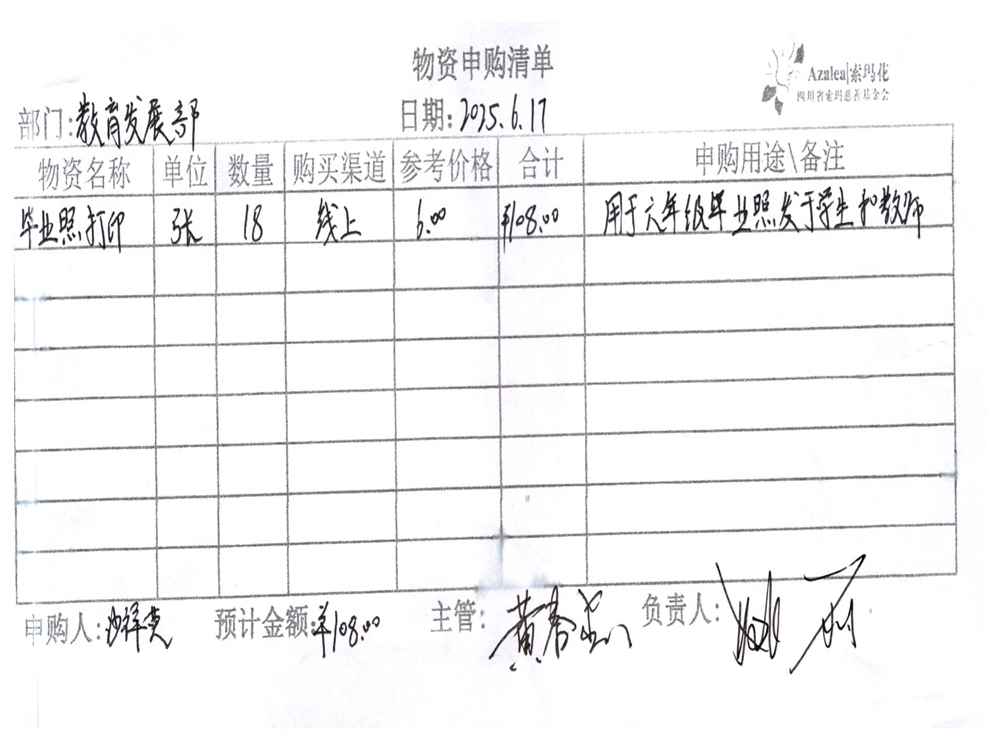 物资申购清单
Azalea|索玛花
四川省索玛慈善基金会
部门:教育发展部 日期:2025.6.17
物资名称 单位 数量 购买渠道 参考价格 合计 申购用途\备注
毕业照打印 张 18 线上 6.00 ¥108.00 用于六年级毕业照发于学生和教师
申购人: 预计金额:¥108.00 主管: 负责人: